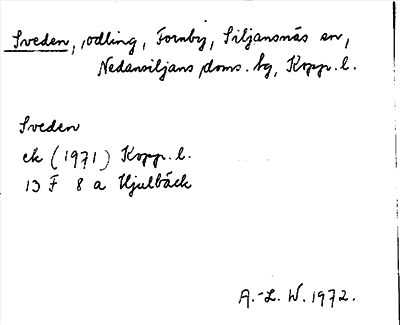 Sveden, odling, Fornby, Siljansnäs sn,
Nedansiljans doms. hg, Kopp. l.
Sveden
ek (1971) Kopp. l.
13 F 8 a Hjulbäck
A.-L. W. 1972.